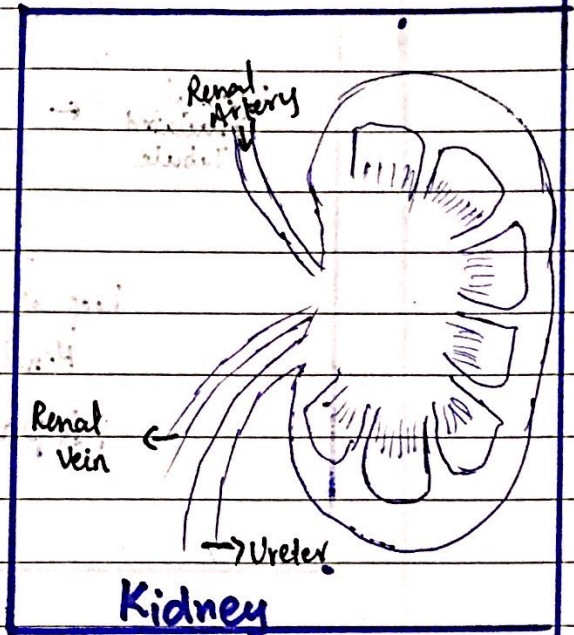 Renal
Artery
Renal
Vein
Ureter
Kidney